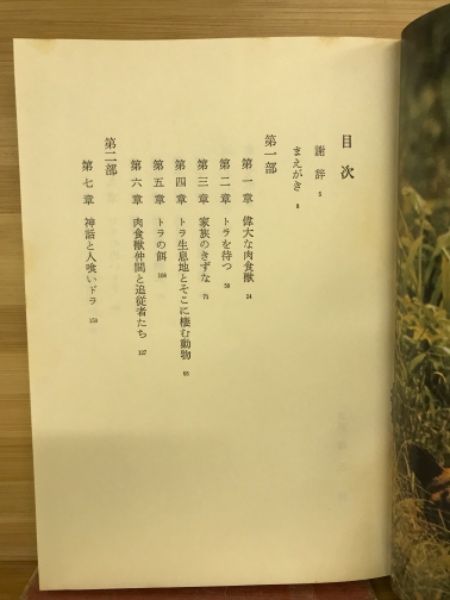 目次
謝辞 5
まえがき 8
第一部
第一章 偉大な肉食獣 14
第二章 トラを待つ
第三章 家族のきずな 71
第四章 トラ生息地とそこに棲む動物
第五章 トラの餌
第六章 肉食獣仲間と追従者たち 127
第二部
第七章 神話と人喰いドラ